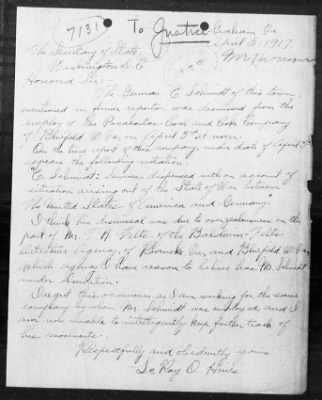 7131
To Justice Graham Va
April 5, 1917.
The Secretary of State,
Washington D. C.
Honored Sir:-
The German, C. Schmidt of this town,
mentioned in former reports, was dismissed from the
employ of the Pocahontas Coal and Coke Company
of Bluefield W. Va, on April 3rd at noon.
On the time report of this company under date of April 3rd
appears the following notation.
"C. Schmidt's services dispensed with on account of
situation arising out of the State of War between
The United States of America and Germany."
I think his dismissal was due to overzealousness on the
part of Mr. T. H. Felts of the Baldwin-Felts
Detective Agency, of Roanoke, Va, and Bluefield W. Va,
which agency I have reason to believe has Mr. Schmidt
under
I regret this occurrence as I am working for the same
company by whom Mr Schmidt was employed, and I
am now unable to intelligently keep further track of
his movements.
Respectfully and obediently yours
Le Roy O.